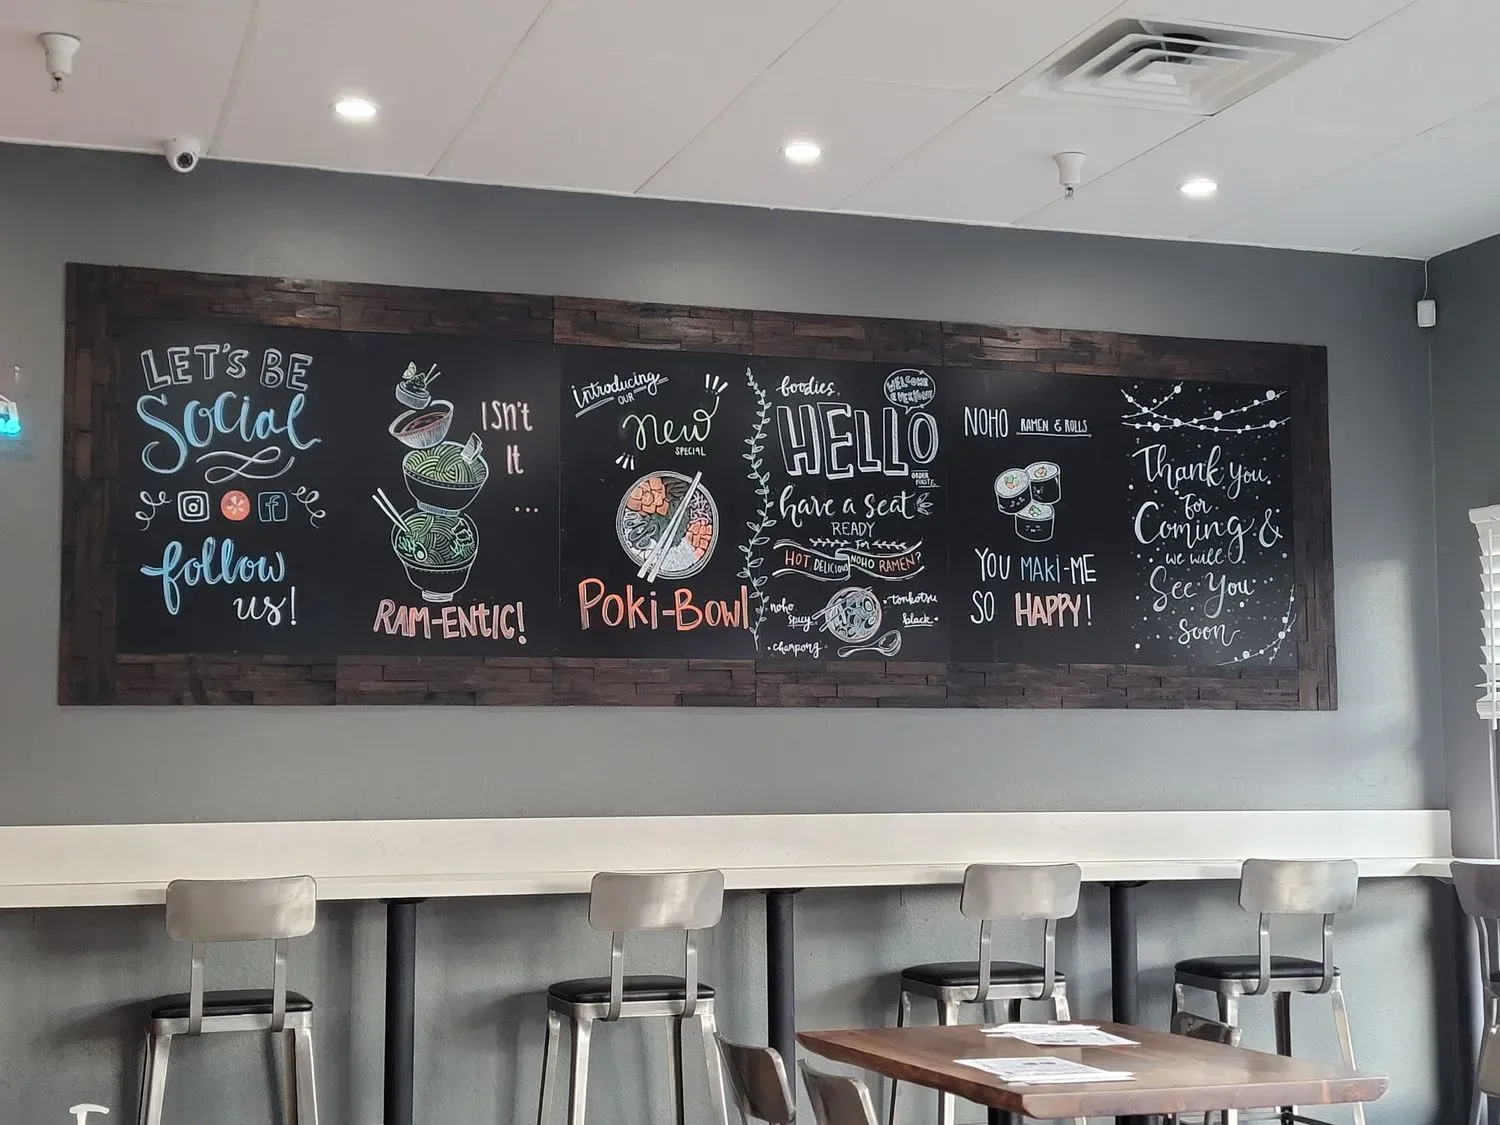 LET'S BE
Social
follow
us!
ISn't
It
...
RAM-ENTIC!
introducing
OUR
New
SPECIAL
POKi-BOWl
foodies,
WELCOME
EVERYONE
HELLO
ORDER
FIRST &
have a seat
READY
FOR
HOT DELICIOUS NOHO RAMEN?
noho
spicy
champong
tonkotsu
black
NOHO RAMEN & ROLLS
YOU MAKi-ME
SO HAPPY!
Thank you
for
Coming &
we will
See You
soon